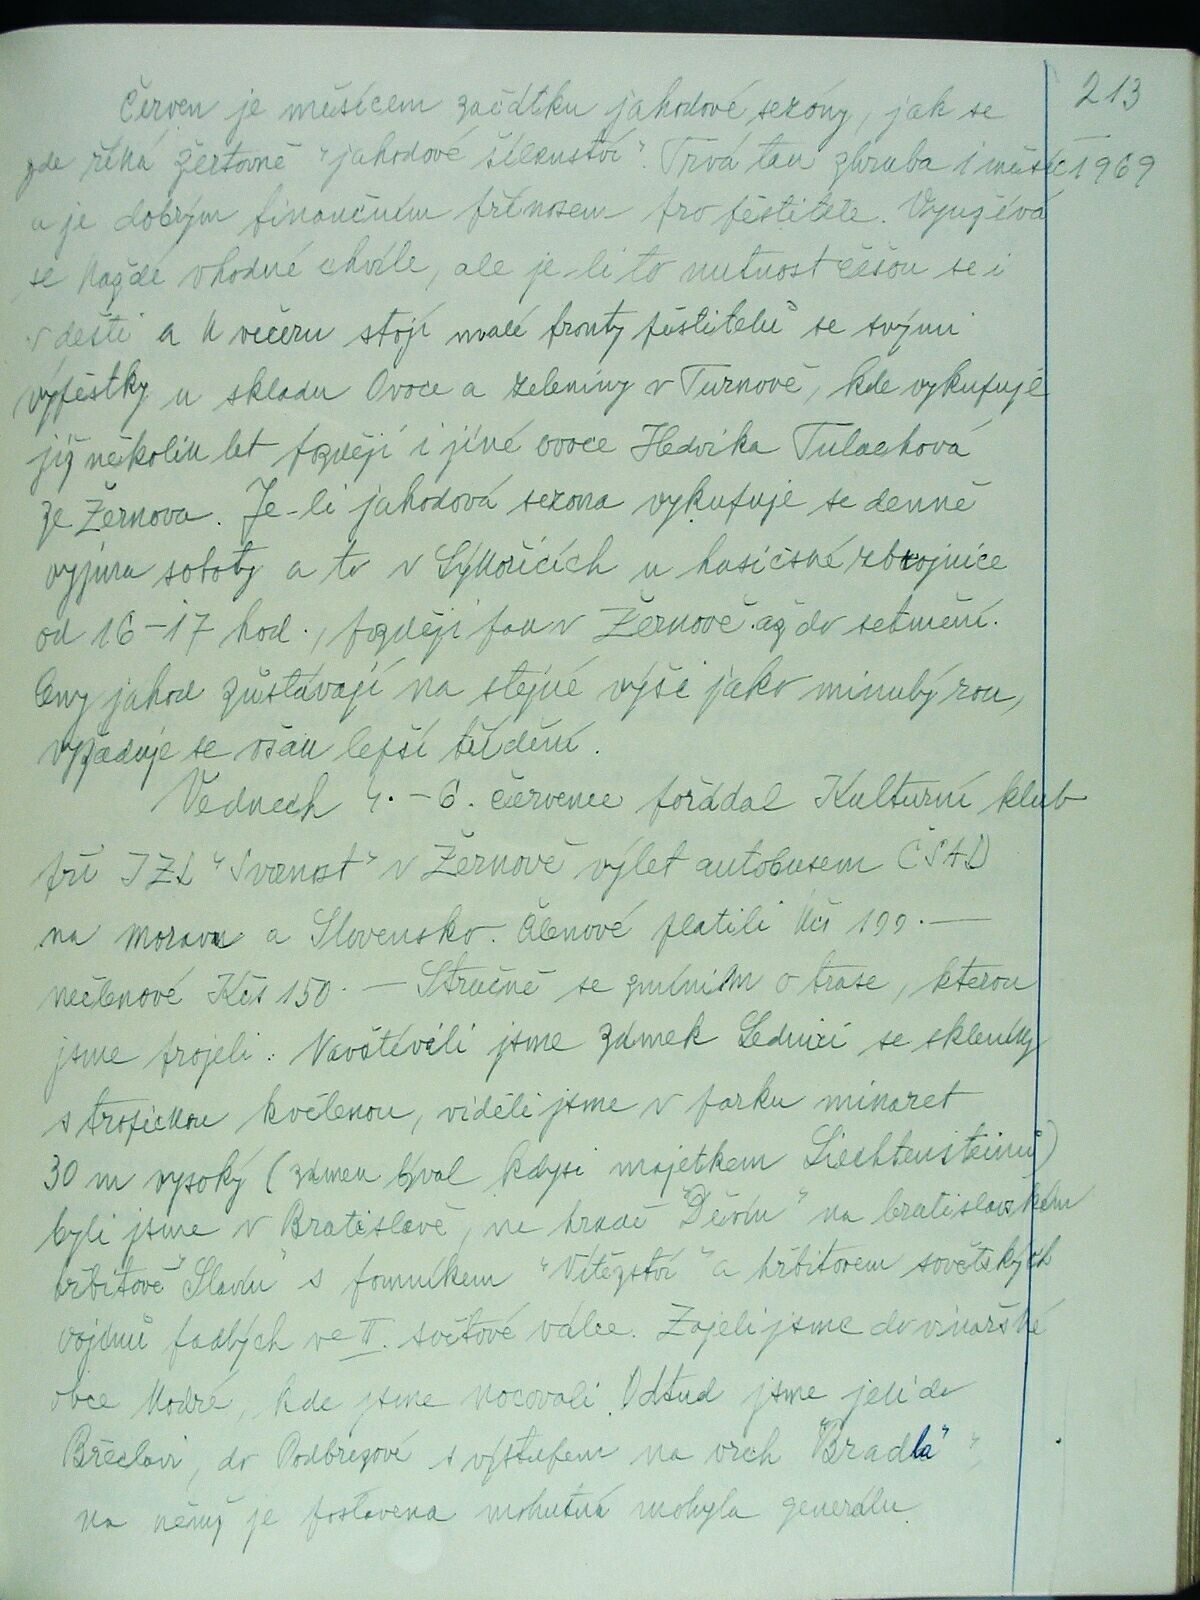 213
Červen je měsícem začátku jahodové sezóny, jak se
zde říká žertovně "jahodové šílenství". Trvá tak zhruba 1 měsíc 1969
a je dobrým finančním přínosem pro pěstitele. Využívá
se každé vhodné chvíle, ale je-li to nutnost češou se i
v dešti a k večeru stojí malé fronty pěstitelů se svými
výpěstky u skladu Ovoce a zeleniny v Turnově, kde vykupuje
již několik let později i jiné ovoce Hedvika Tulachová
ze Žernova. Je-li jahodová sezona vykupuje se denně
vyjma soboty a to v Sýkořicích u hasičské zbrojnice
od 16-17 hod., později pak v Žernově až do setmění.
Ceny jahod zůstávají na stejné výši jako minulý rok,
vyžaduje se však lepší třídění.
V dnech 4. - 6. července pořádal Kulturní klub
při JZD "Svornost" v Žernově výlet autobusem ČSAD
na Moravu a Slovensko. Členové platili Kčs 100.—
nečlenové Kčs 150.— Stručně se zmíním o trase, kterou
jsme projeli: Navštívili jsme zámek Lednici se skleníky
s tropickou květenou, viděli jsme v parku minaret
30 m vysoký (zámek býval kdysi majetkem Liechtensteinů)
byli jsme v Bratislavě, na hradě "Děvín" na bratislavském
hřbitově "Slavín" s pomníkem "Vítězství" a hřbitovem sovětských
vojínů padlých ve II. světové válce. Zajeli jsme do vinařské
obce Modré, kde jsme nocovali. Odtud jsme jeli do
Břeclavi, do Podbrezové s výstupem na vrch "Bradla",
na němž je postavena mohutná mohyla generálu